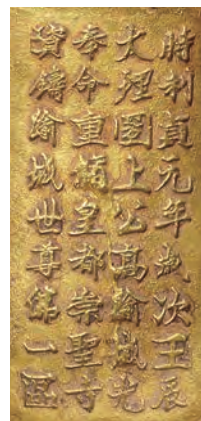 時利貞元年歲次壬辰
大理圀上公高踰城光
奉命重脩皇都崇聖寺
資鑄踰城世尊第一區